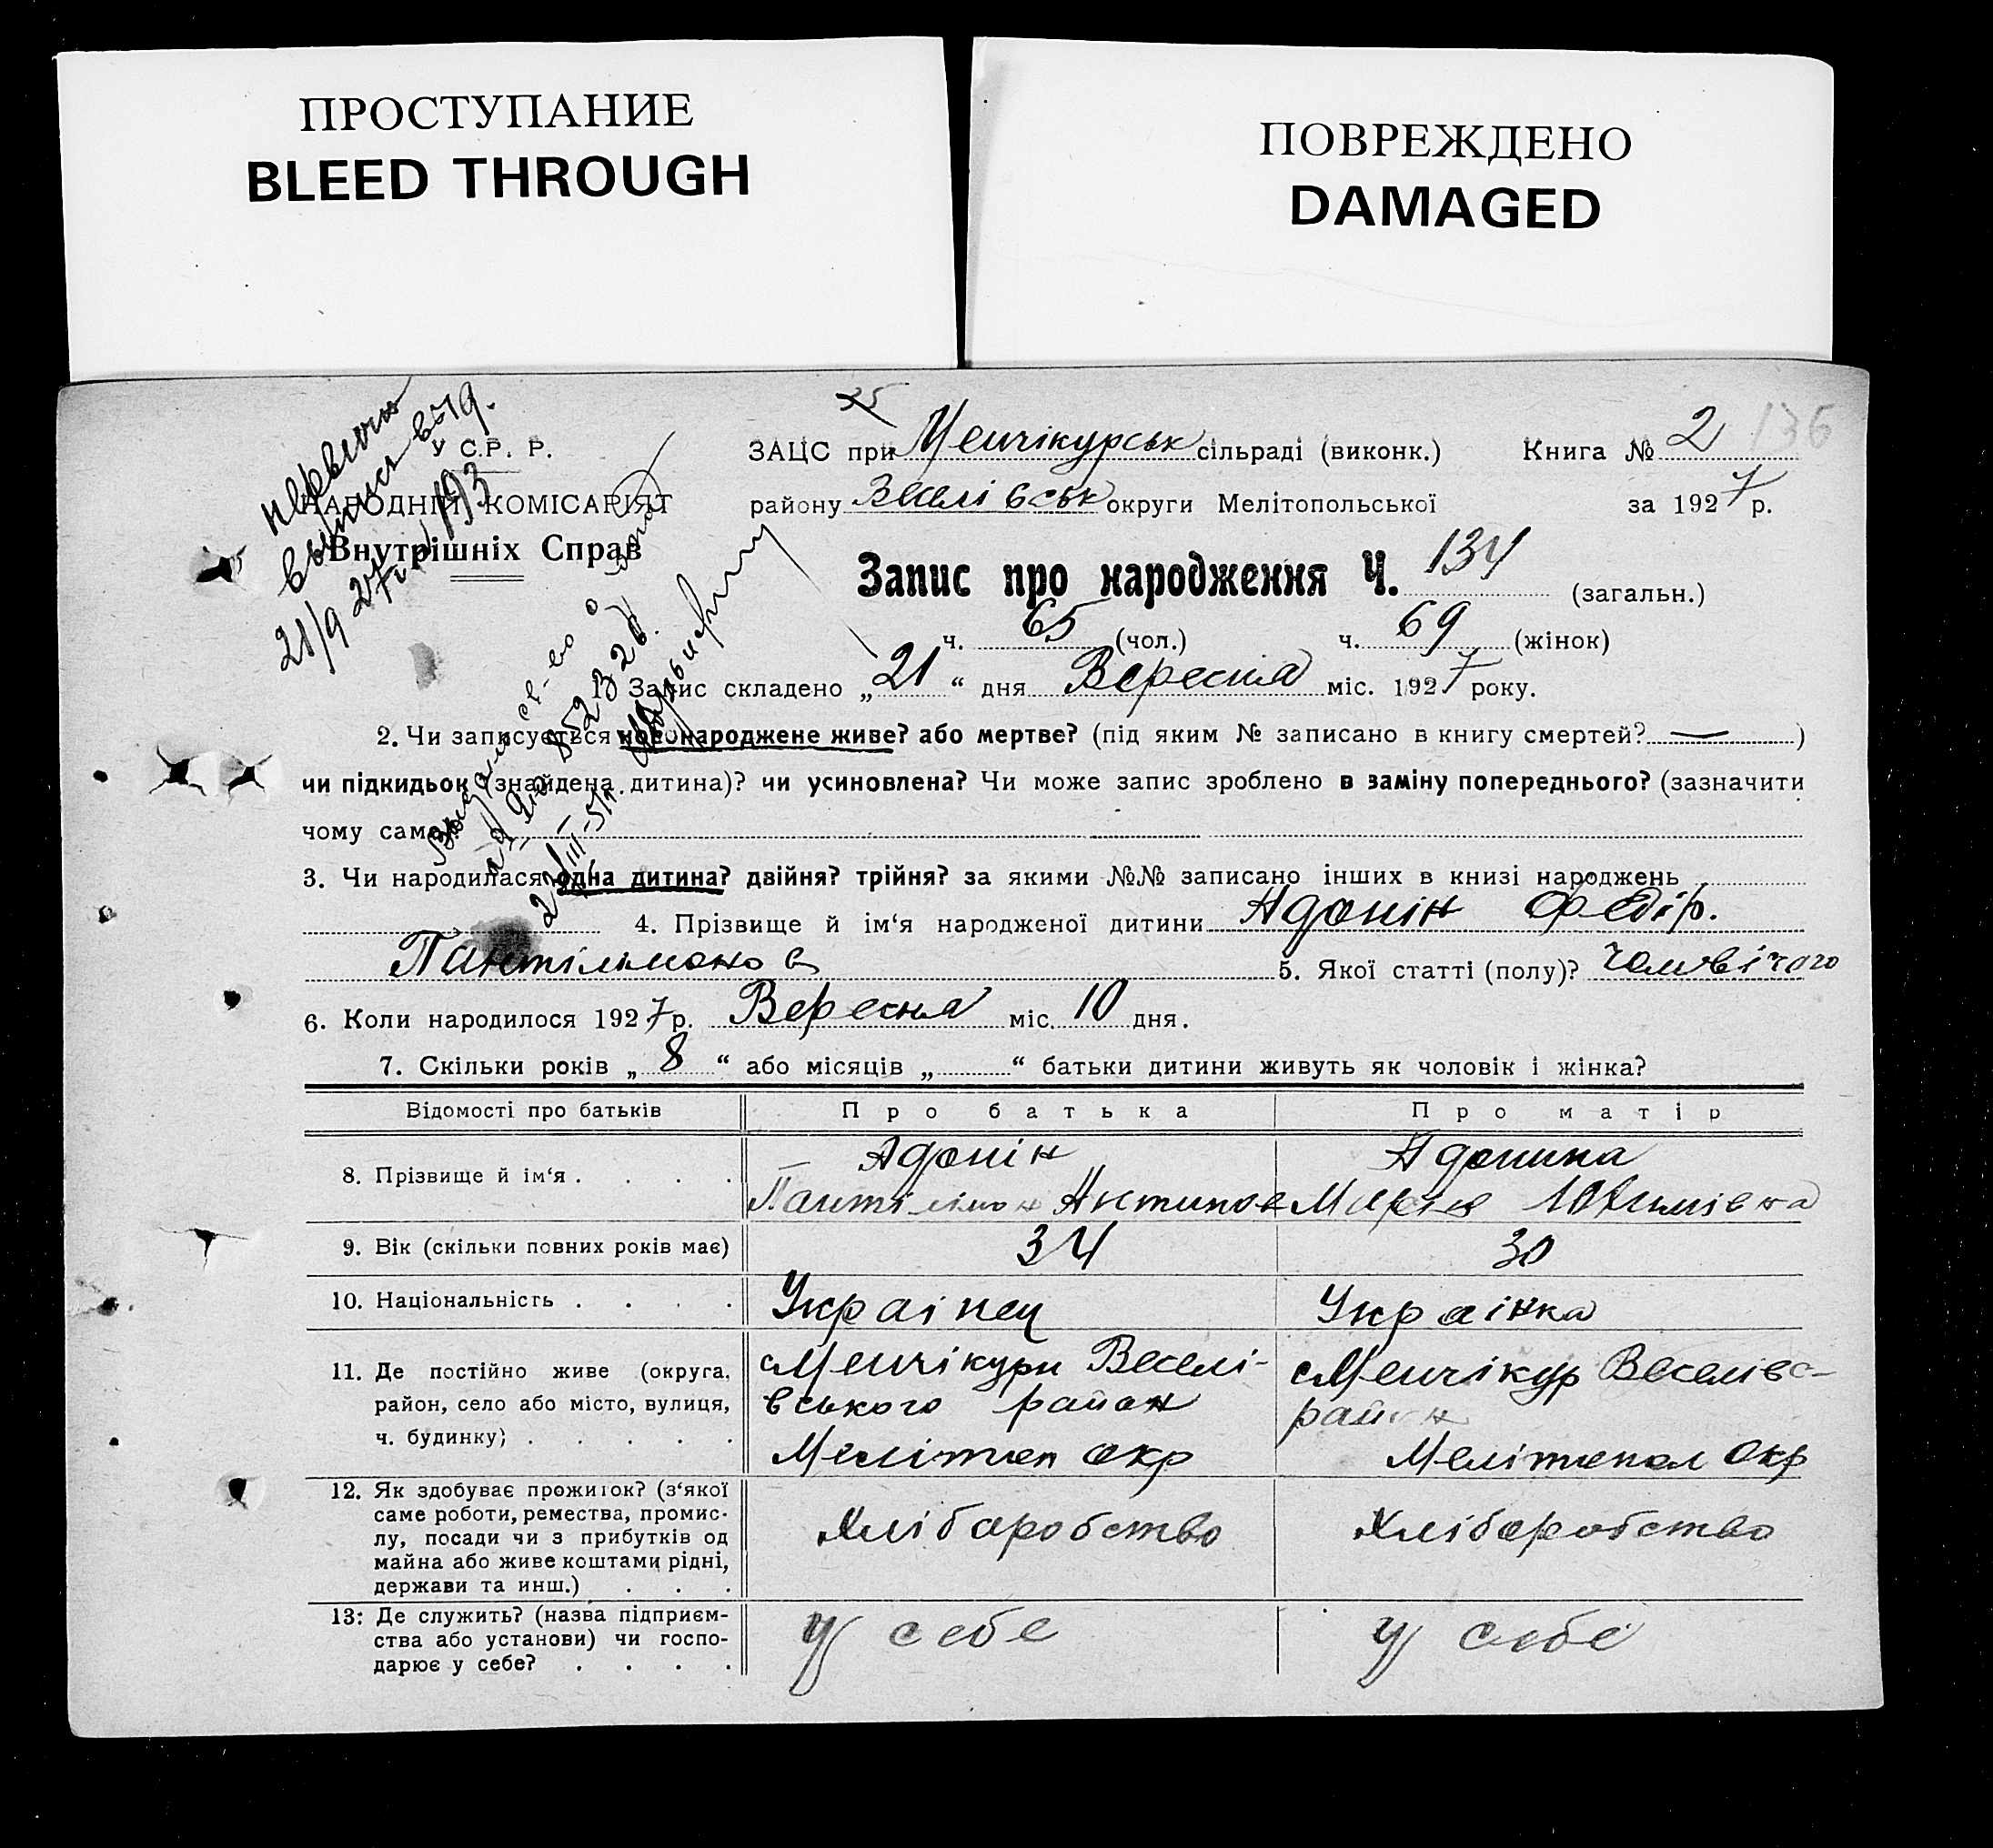 ПРОСТУПАНИЕ
BLEED THROUGH
ПОВРЕЖДЕНО
DAMAGED
25
У С.Р. Р.
НАРОДНІЙ КОМІСАРІЯТ
Внутрішніх Справ
21/9 27
ЗАЦС при Менчікурськ сільраді (виконк.) Книга № 2 136
району Веселівськ округи Мелітопольської за 1927 р.
Запис про народження Ч. 134 (загальн.)
ч. 65 (чол.) ч. 69 (жінок)
1) Запис складено „21“ дня Вересня міс. 1927 року.
2. Чи записується новонароджене живе? або мертве? (під яким № записано в книгу смертей? — )
чи підкидьок (знайдена дитина)? чи усиновлена? Чи може запис зроблено в заміну попереднього? (зазначити
чому саме
3. Чи народилася одна дитина? двійня? трійня? за якими №№ записано інших в книзі народжень
4. Прізвище й ім‘я народженої дитини Адонін Федір.
Пантілімонов 5. Якої статті (полу)? чоловічого
6. Коли народилося 1927 р. Вересня міс. 10 дня.
7. Скільки років „ 8 “ або місяців „ “ батьки дитини живуть як чоловік і жінка?
Відомості про батьків Про батька Про матір
8. Прізвище й ім‘я . . . . Адонін Адонина
Пантілімон Антипов Марія
9. Вік (скільки повних років має) 34 30
10. Національність . . . . Украінец Украінка
11. Де постійно живе (округа, район, село або місто, вулиця, ч. будинку) . . . . .
с Менчікури Веселі-
вського район
Мелітоп окр
с Менчікур Веселівс-
район
Мелітопол окр
12. Як здобуває прожиток? (з‘якої
саме роботи, ремества, промис-
лу, посади чи з прибутків од
майна або живе коштами рідні,
держави та инш.) . . .
Хлібаробство Хліборобство
13: Де служить? (назва підприєм-
ства або установи) чи госпо-
дарює у себе? . . . .
У себе У себе